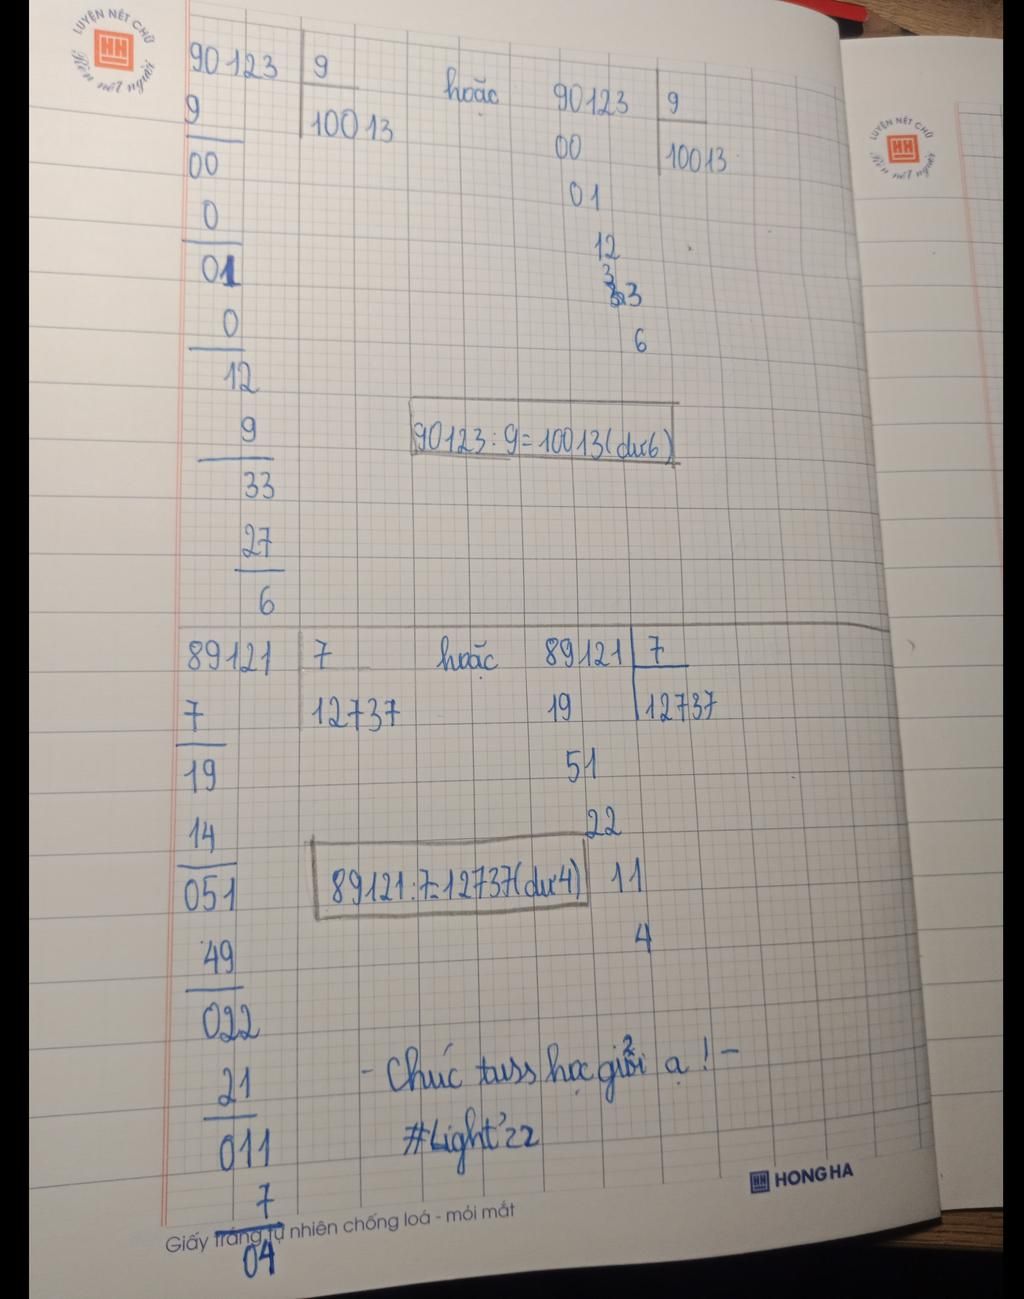 LUYỆN NÉT CHỮ
HH
Rèn nết người
90123 9
9 10013
00
0
01
0
12
9
33
27
6
hoặc
90123 9
00 10013
01
12
33
6
90123:9=10013(dư6)
LUYỆN NÉT CHỮ
HH
Rèn nết người
89121 7
7 12737
19
14
051
49
022
21
011
7
04
hoặc
89121 7
19 12737
51
22
11
4
89121:7=12737(dư4)
- Chúc tuss học giỏi ạ! -
#Light'zz
HH HONG HA
Giấy trắng tự nhiên chống loá - mỏi mắt